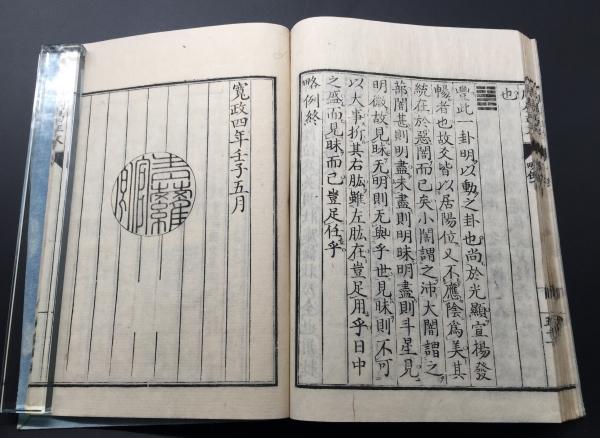 也
䷶
豐此一卦明以動之卦也尚於光顯宣揚發
暢者也故爻皆以居陽位又不應陰為美其
統在於惡闇而已矣小闇謂之沛大闇謂之
蔀闇甚則明盡未盡則明昧明盡則斗星見
明微故見昧无明則无與乎世見昧則不可
以大事折其右肱雖左肱在豈足用乎日中
之盛而見昧而已豈足任乎
略例終
寬政四年壬子五月
青蘿館